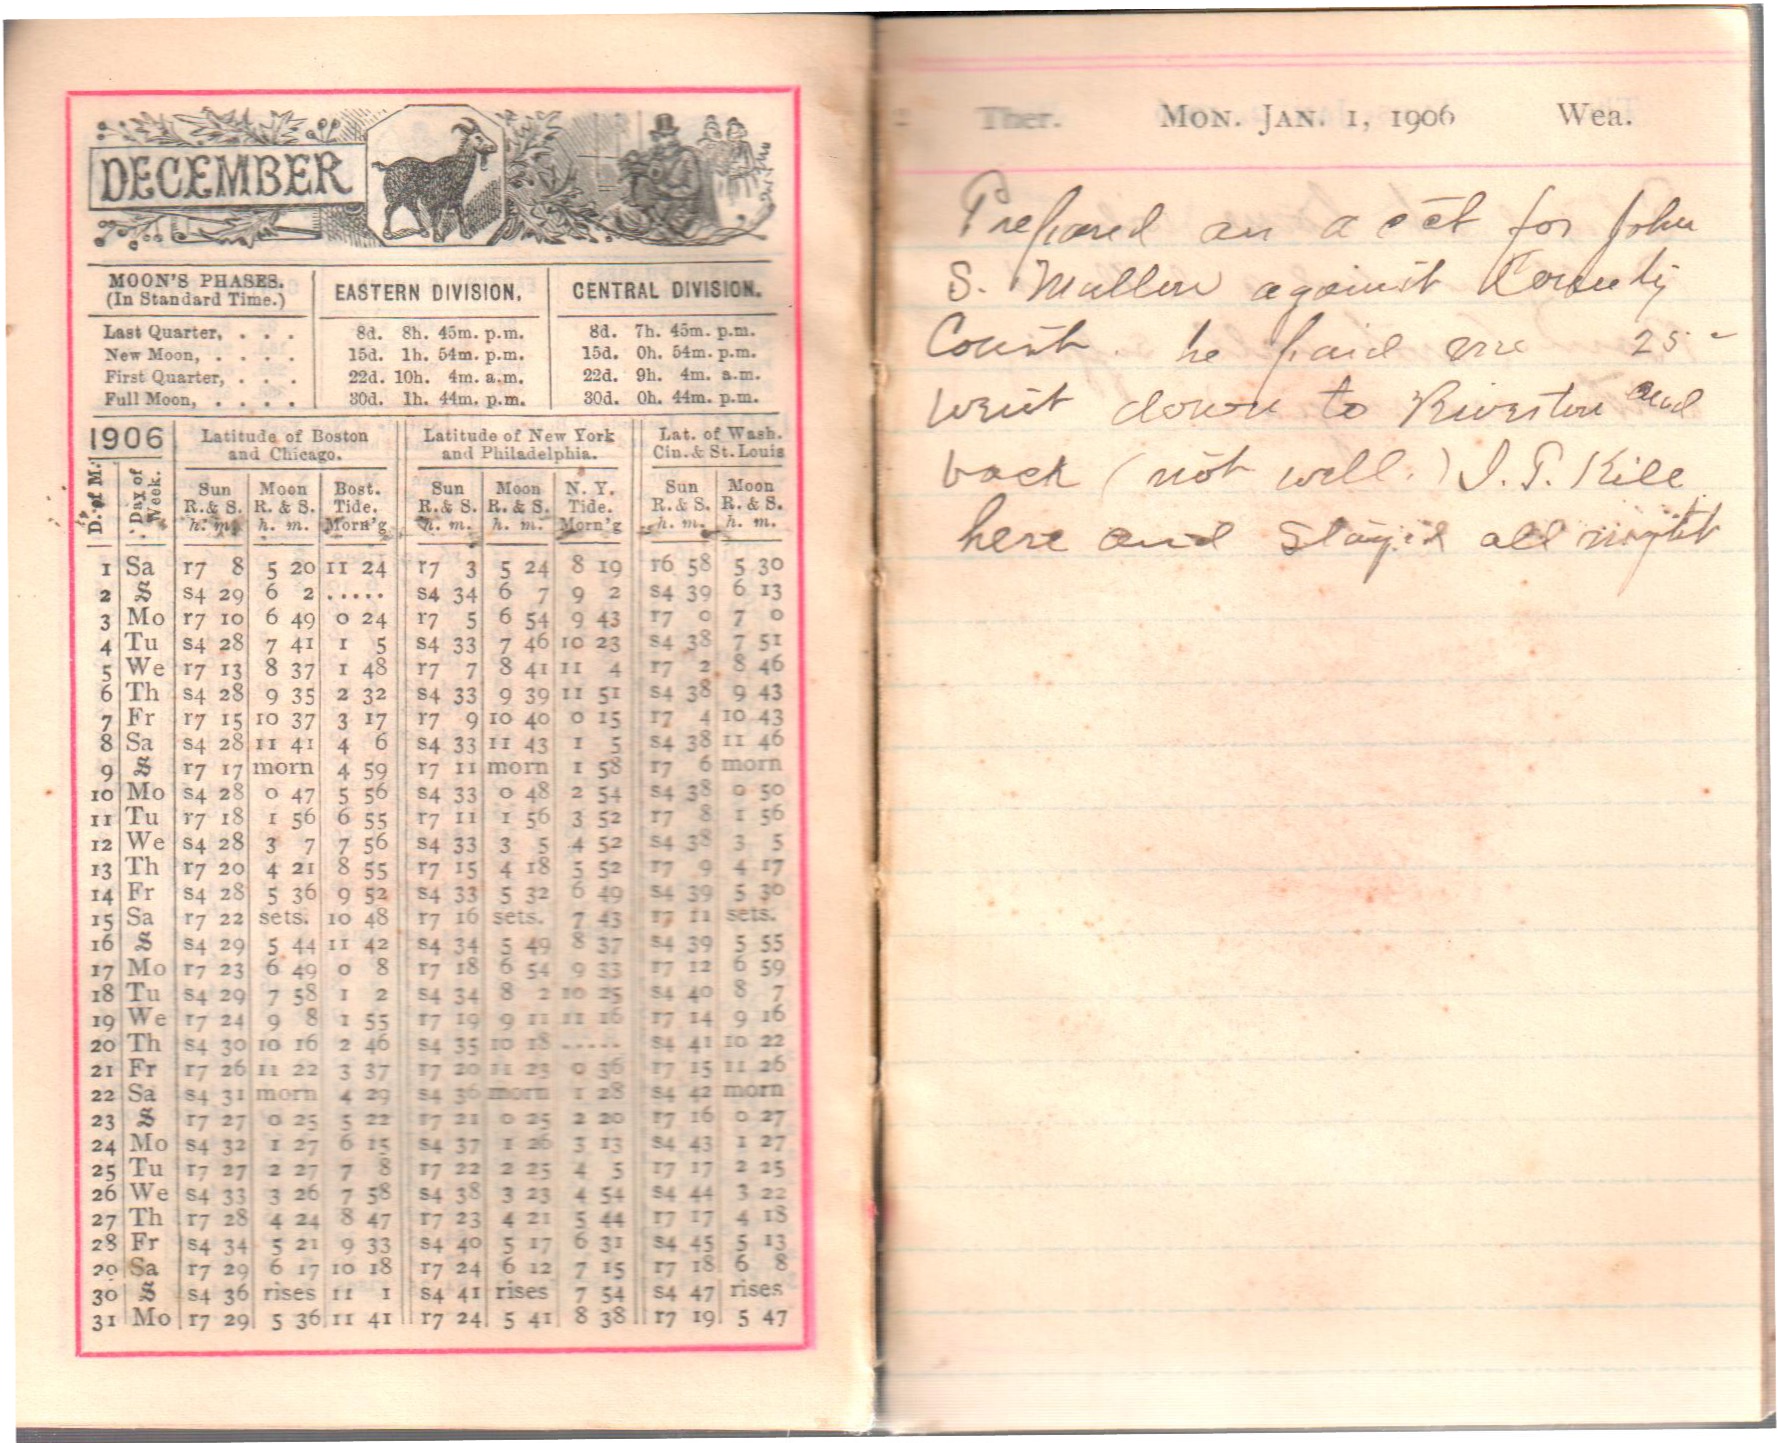 DECEMBER
MOON'S PHASES. (In Standard Time.) EASTERN DIVISION. CENTRAL DIVISION.
Last Quarter, . . . 8d. 8h. 45m. p.m. 8d. 7h. 45m. p.m.
New Moon, . . . . 15d. 1h. 54m. p.m. 15d. 0h. 54m. p.m.
First Quarter, . . . 22d. 10h. 4m. a.m. 22d. 9h. 4m. a.m.
Full Moon, . . . . 30d. 1h. 44m. p.m. 30d. 0h. 44m. p.m.
1906 Latitude of Boston and Chicago. Latitude of New York and Philadelphia. Lat. of Wash. Cin. & St. Louis
D. of M. Day of Week. Sun R. & S. h. m. Moon R. & S. h. m. Bost. Tide. Morn'g Sun R. & S. h. m. Moon R. & S. h. m. N. Y. Tide. Morn'g Sun R. & S. h. m. Moon R. & S. h. m.
1 Sa r7 8 5 20 11 24 r7 3 5 24 8 19 r6 58 5 30
2 S s4 29 6 2 ..... s4 34 6 7 9 2 s4 39 6 13
3 Mo r7 10 6 49 0 24 r7 5 6 54 9 43 r7 0 7 0
4 Tu s4 28 7 41 1 5 s4 33 7 46 10 23 s4 38 7 51
5 We r7 13 8 37 1 48 r7 7 8 41 11 4 r7 2 8 46
6 Th s4 28 9 35 2 32 s4 33 9 39 11 51 s4 38 9 43
7 Fr r7 15 10 37 3 17 r7 9 10 40 0 15 r7 4 10 43
8 Sa s4 28 11 41 4 6 s4 33 11 43 1 5 s4 38 11 46
9 S r7 17 morn 4 59 r7 11 morn 1 58 r7 6 morn
10 Mo s4 28 0 47 5 56 s4 33 0 48 2 54 s4 38 0 50
11 Tu r7 18 1 56 6 55 r7 11 1 56 3 52 r7 8 1 56
12 We s4 28 3 7 7 56 s4 33 3 5 4 52 s4 38 3 5
13 Th r7 20 4 21 8 55 r7 15 4 18 5 52 r7 9 4 17
14 Fr s4 28 5 36 9 52 s4 33 5 32 6 49 s4 39 5 30
15 Sa r7 22 sets. 10 48 r7 16 sets. 7 43 r7 11 sets.
16 S s4 29 5 44 11 42 s4 34 5 49 8 37 s4 39 5 55
17 Mo r7 23 6 49 0 8 r7 18 6 54 9 33 r7 12 6 59
18 Tu s4 29 7 58 1 2 s4 34 8 2 10 25 s4 40 8 7
19 We r7 24 9 8 1 55 r7 19 9 11 11 16 r7 14 9 16
20 Th s4 30 10 16 2 46 s4 35 10 18 ..... s4 41 10 22
21 Fr r7 26 11 22 3 37 r7 20 11 23 0 36 r7 15 11 26
22 Sa s4 31 morn 4 29 s4 36 morn 1 28 s4 42 morn
23 S r7 27 0 25 5 22 r7 21 0 25 2 20 r7 16 0 27
24 Mo s4 32 1 27 6 15 s4 37 1 26 3 13 s4 43 1 27
25 Tu r7 27 2 27 7 8 r7 22 2 25 4 5 r7 17 2 25
26 We s4 33 3 26 7 58 s4 38 3 23 4 54 s4 44 3 22
27 Th r7 28 4 24 8 47 r7 23 4 21 5 44 r7 17 4 18
28 Fr s4 34 5 21 9 33 s4 40 5 17 6 31 s4 45 5 13
29 Sa r7 29 6 17 10 18 r7 24 6 12 7 15 r7 18 6 8
30 S s4 36 rises 11 1 s4 41 rises 7 54 s4 47 rises
31 Mo r7 29 5 36 11 41 r7 24 5 41 8 38 r7 19 5 47
Ther. MON. JAN. 1, 1906 Wea.
Prepared an acct for John
S. Mullen against County
Court. he paid me 25-
went down to Riverton and
back (not well.) I. T. Kile
here and stayed all night